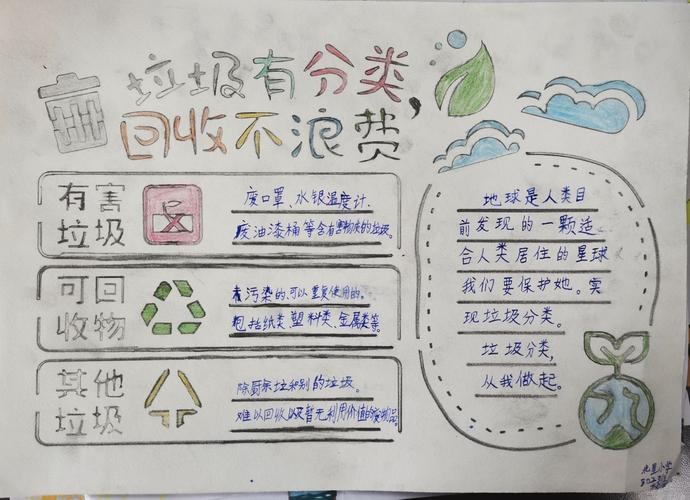 垃圾有分类，
回收不浪费
有害
垃圾
废口罩、水银温度计.
废油漆桶等含有害物质的垃圾。
可回
收物
污染的,可以重复使用的。
包括纸类,塑料类,金属类等。
其他
垃圾
除厨余垃圾别的垃圾。
难以回收以及暂无利用价值的废物品。
地球是人类目
前发现的一颗适
合人类居住的星球
我们要保护她。实
现垃圾分类。
垃圾分类,
从我做起。
小学